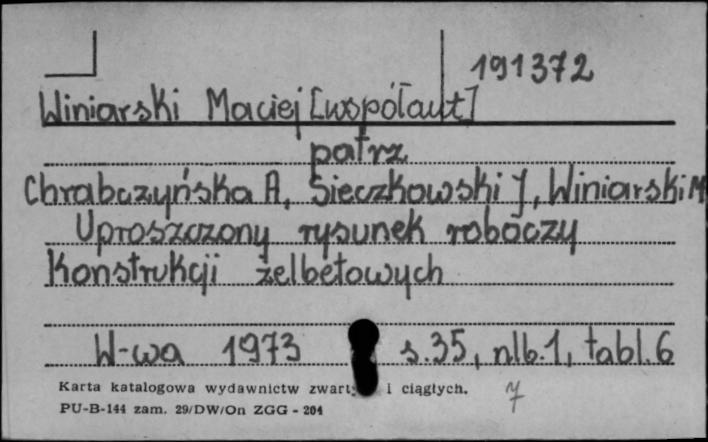 191372
Winiarski Maciej [współaut]
patrz
Chrabczyńska A, Sieczkowski J, Winiarski M
Uproszczony rysunek roboczy
Konstrukcji żelbetowych
W-wa 1973 s.35, nlb.1, tabl.6
Karta katalogowa wydawnictw i ciągłych.
7
PU-B-144 zam. 29/DW/On ZGG - 204